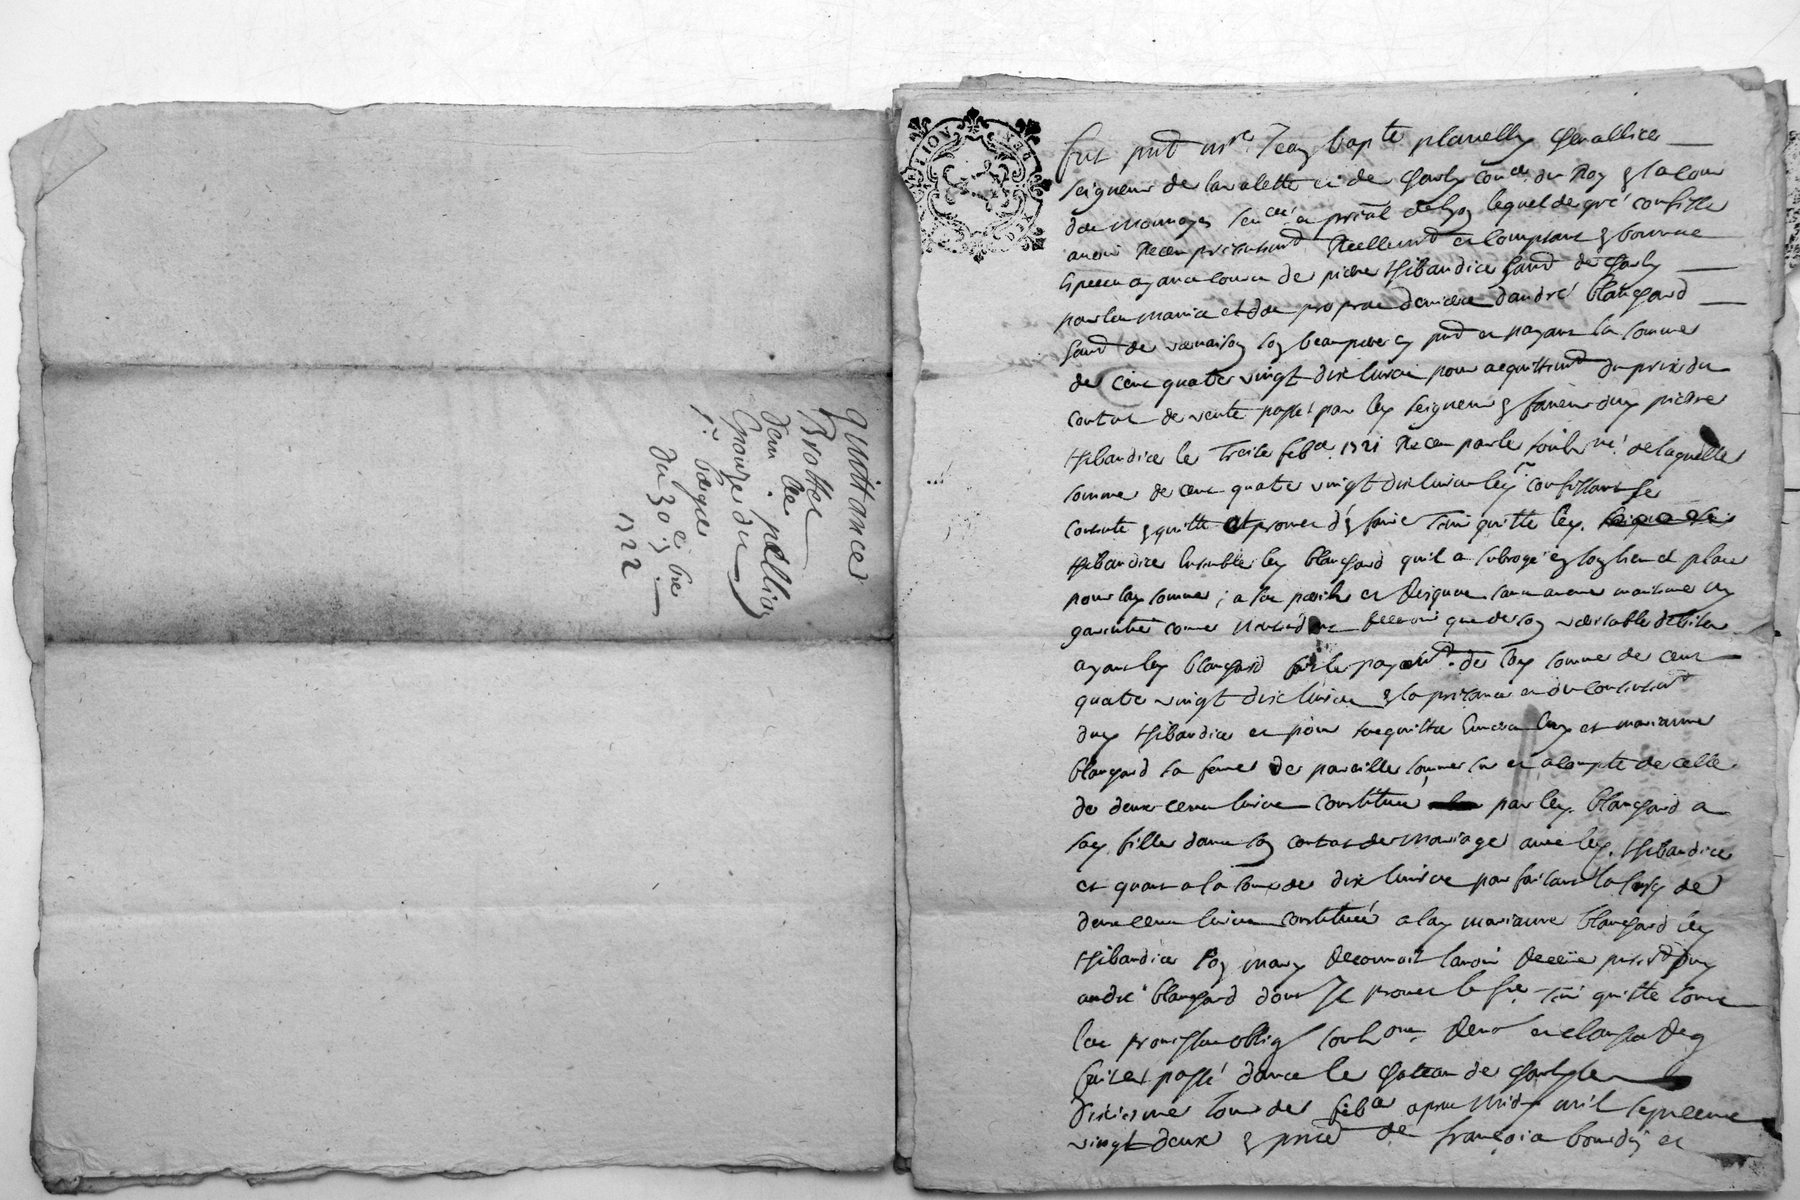 quittance
Brottel
dem
Grange du
sr.
du 30e
1722
fut pnt mre Jean bapte planelly chevallier
seigneur de lavalette et de charly coner du Roy la cour
des monnoyes sencée et prsal de lyon lequel de gré confesse
avoir Receu presentemt Reellemt et comptant bonnes
especes ayant cours de pierre thibaudier hant de charly
par les mains et des propres deniers d'andré blanchard
hant de vernaison son beaupere cy pnt et payant la somme
de cent quatre vingt dix livres pour acquittemt du prix du
contrat de vente passé par led seigneur faveur dud pierre
thibaudier le treize febr 1721 Receu par le soubsné de laquelle
somme de cent quatre vingt dix livres led sr confessant se
contente quitte et promet d'en faire tenir quitte led.
thibaudier ensemble led blanchard qu'il a subrogé en son lieu et place
pour lad somme a ses perils et Risques sans aucune maintenue ny
garentie comme que de son veritable debiteur
ayant led blanchard fait le payemt de lad somme de cent
quatre vingt dix livres la presence et du consentemt
dud thibaudier et pour s'acquitter envers luy et marianne
blanchard sa feme de pareille somme et acompte de celle
de deux cents livres constituée par led. blanchard a
sad. fille dans son contrat de mariage avec led. thibaudier
et quant a la some de dix livres parfaisant de
deux cents livres constituée a lad marianne blanchard led
thibaudier son mary Reconnoit l'avoir Receue dud
andré blanchard dont Il promet le fre tenir quitte
les promess oblig Renon et clauses
fait et passé dans le chateau de charly le
dixieme jour de febr apres midy mil sept cents
vingt deux prnce de françois bourdin et